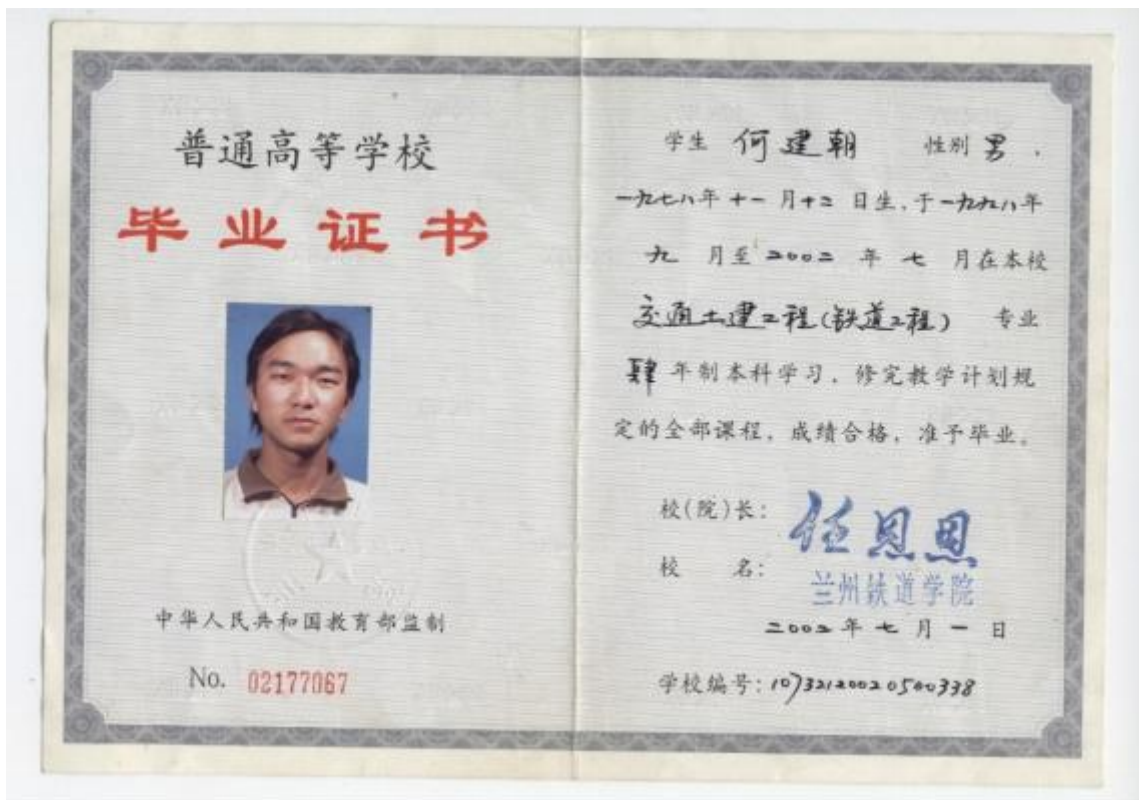 普通高等学校
毕业证书
中华人民共和国教育部监制
No. 02177067
学生 何建朝 性别 男,
一九七八年十一月十二日生,于一九九八年
九月至二〇〇二年七月在本校
交通土建工程(铁道工程) 专业
肆年制本科学习,修完教学计划规
定的全部课程,成绩合格,准予毕业。
校(院)长: 任恩恩
校 名: 兰州铁道学院
二〇〇二年七月一日
学校编号: 107321200205000338